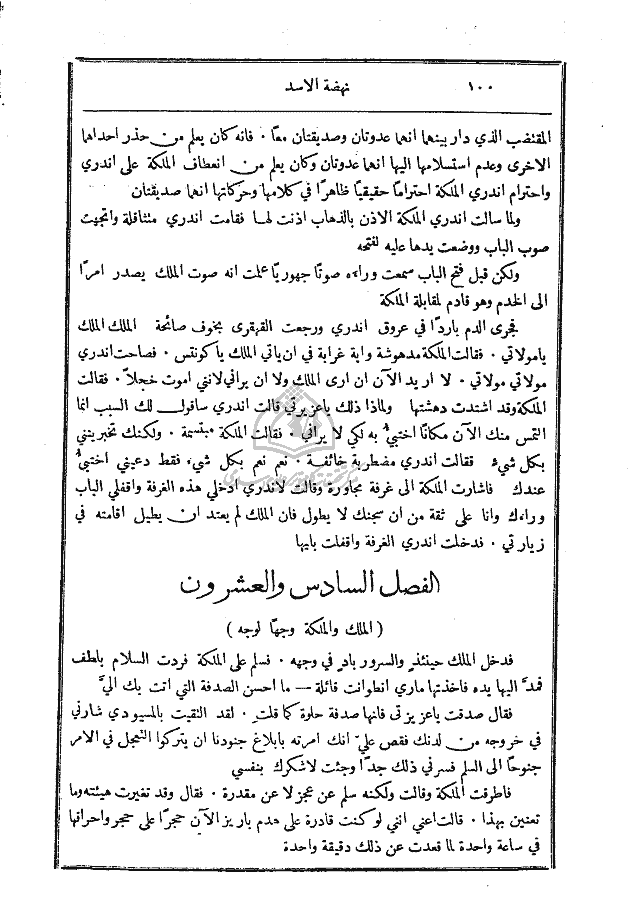 ١٠٠ نهضة الاسد
المقتضب الذي دار بينهما انهما عدوتان وصديقتان معًا ٠ فانه كان يعلم من حذر احداهما
الاخرى وعدم استسلامها اليها انهما عدوتان وكان يعلم من انعطاف الملكة على اندري
واحترام اندري الملكة احترامًا حقيقيًا ظاهرًا في كلامها وحركاتها انهما صديقتان
ولما سالت اندري الملكة الاذن بالذهاب اذنت لها فقامت اندري متثاقلة واتجهت
صوب الباب ووضعت يدها عليه لفتحه
ولكن قبل فتح الباب سمعت وراءه صوتًا جهوريًا علمت انه صوت الملك يصدر امرًا
الى الخدم وهو قادم لمقابلة الملكة
فجرى الدم باردًا في عروق اندري ورجعت القهقرى بخوف صائحة الملك الملك
يامولاتي ٠ فقالت الملكة مدهوشة واية غرابة في ان ياتي الملك ياكونتس ٠ فصاحت اندري
مولاتي مولاتي ٠ لا اريد الآن ان ارى الملك ولا ان يراني لانني اموت خجلاً ٠ فقالت
الملكة وقد اشتدت دهشتها ولماذا ذلك ياعزيزتي قالت اندري ساقول لك السبب انما
التمس منك الآن مكانًا اختبيُّ به لكي لا يراني ٠ فقالت الملكة مبتسمة ٠ ولكنك تخبرينني
بكل شيء ٠ فقالت اندري مضطربة خائفة ٠ نعم نعم بكل شيء فقط دعيني اختبيُّ
عندك ٠ فاشارت الملكة الى غرفة مجاورة وقالت لاندري ادخلي هذه الغرفة واقفلي الباب
وراءك وانا على ثقة من ان سجنك لا يطول فان الملك لم يعتد ان يطيل اقامته في
زيارتي ٠ فدخلت اندري الغرفة واقفلت بابها
الفصل السادس والعشرون
( الملك والملكة وجهًا لوجه )
فدخل الملك حينئذٍ والسرور بادٍ في وجهه ٠ فسلم على الملكة فردت السلام بلطف
فمدَّ اليها يده فاخذتها ماري انطوانت قائلة — ما احسن الصدفة التي اتت بك اليَّ
فقال صدقت ياعزيزتي فانها صدفة حلوة كما قلتِ ٠ لقد التقيت بالمسيو دي شارني
في خروجه من لدنك فقص عليَّ انك امرته بابلاغ جنودنا ان يتركوا التعجل في الامر
جنوحًا الى السلم فسرني ذلك جدًا وجئت لاشكرك بنفسي
فاطرقت الملكة وقالت ولكنه سلم عن عجز لا عن مقدرة ٠ فقال وقد تغيرت هيئته وما
تعنين بهذا ٠ قالت اعني انني لو كنت قادرة على هدم باريز الآن حجرًا على حجر واحراقها
في ساعة واحدة لما قعدت عن ذلك دقيقة واحدة